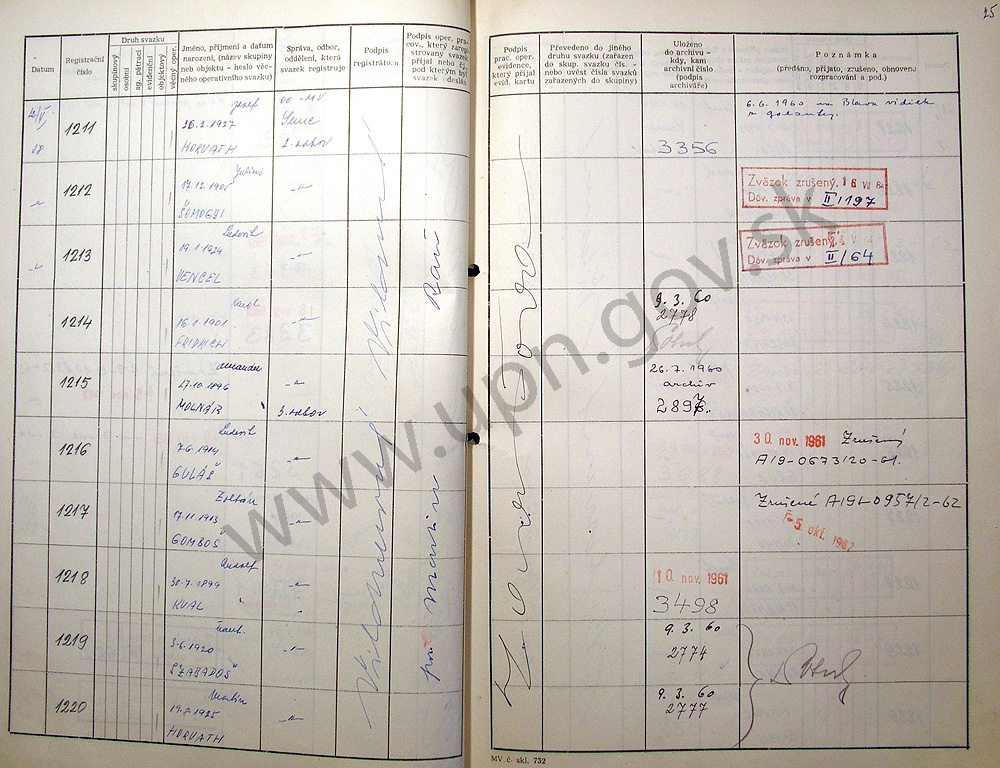 25
Datum
Registrační
číslo
Druh svazku
skupinový
osobní
ag. pátrací
evidenční
objektový
věcný oper.
Jméno, příjmení a datum
narození, (název skupiny
neb objektu - heslo věc-
ného operativního svazku)
Správa, odbor,
oddělení, která
svazek registruje
Podpis
registrátora
Podpis oper. pra-
cov., který zareg-
istrovaný svazek
přijal nebo čj.
pod kterým byl
svazek odeslán
Podpis
prac. oper.
evidence,
který přijal
evid. kartu
Převedeno do jiného
druhu svazku (zařazen
do skup. svazku čís. -
nebo uvést čísla svazků
zařazených do skupiny)
Uloženo
do archivu -
kdy, kam
archivní číslo
(podpis
archiváře)
Poznámka
(předáno, přijato, zrušeno, obnoveno
rozpracování a pod.)
1211
Jozef
26.2.1927
HORVATH
OO-MV
Senec
2. odbor
3356
6.6.1960
1212
Július
17.12.1905
ŠOMOGYI
Zväzok zrušený. 16 VII 64
Dôv. zpráva v II/197
1213
Ľudovít
19.1.1924
VENCEL
Zväzok zrušený.
Dôv. zpráva v II/64
1214
Karol
16.1.1901
FRIDRICH
9.3.60
2778
1215
Alexander
27.10.1896
MOLNÁR
3. odbor
26.7.1960
archív
1216
Ľudovít
7.6.1914
GULÁŠ
30. nov. 1961 Zrušený
A19-0673/20-61.
1217
Zoltán
17.11.1913
GOMBOŠ
Zrušené A19-0957/2-62
-5. okt. 1962
1218
Rudolf
30.7.1899
KVAL
10. nov. 1961
3498
1219
3.6.1920
SZABADOŠ
9.3.60
2774
1220
Martin
HORVATH
9.3.60
2777
MV č. skl. 732
www.upn.gov.sk